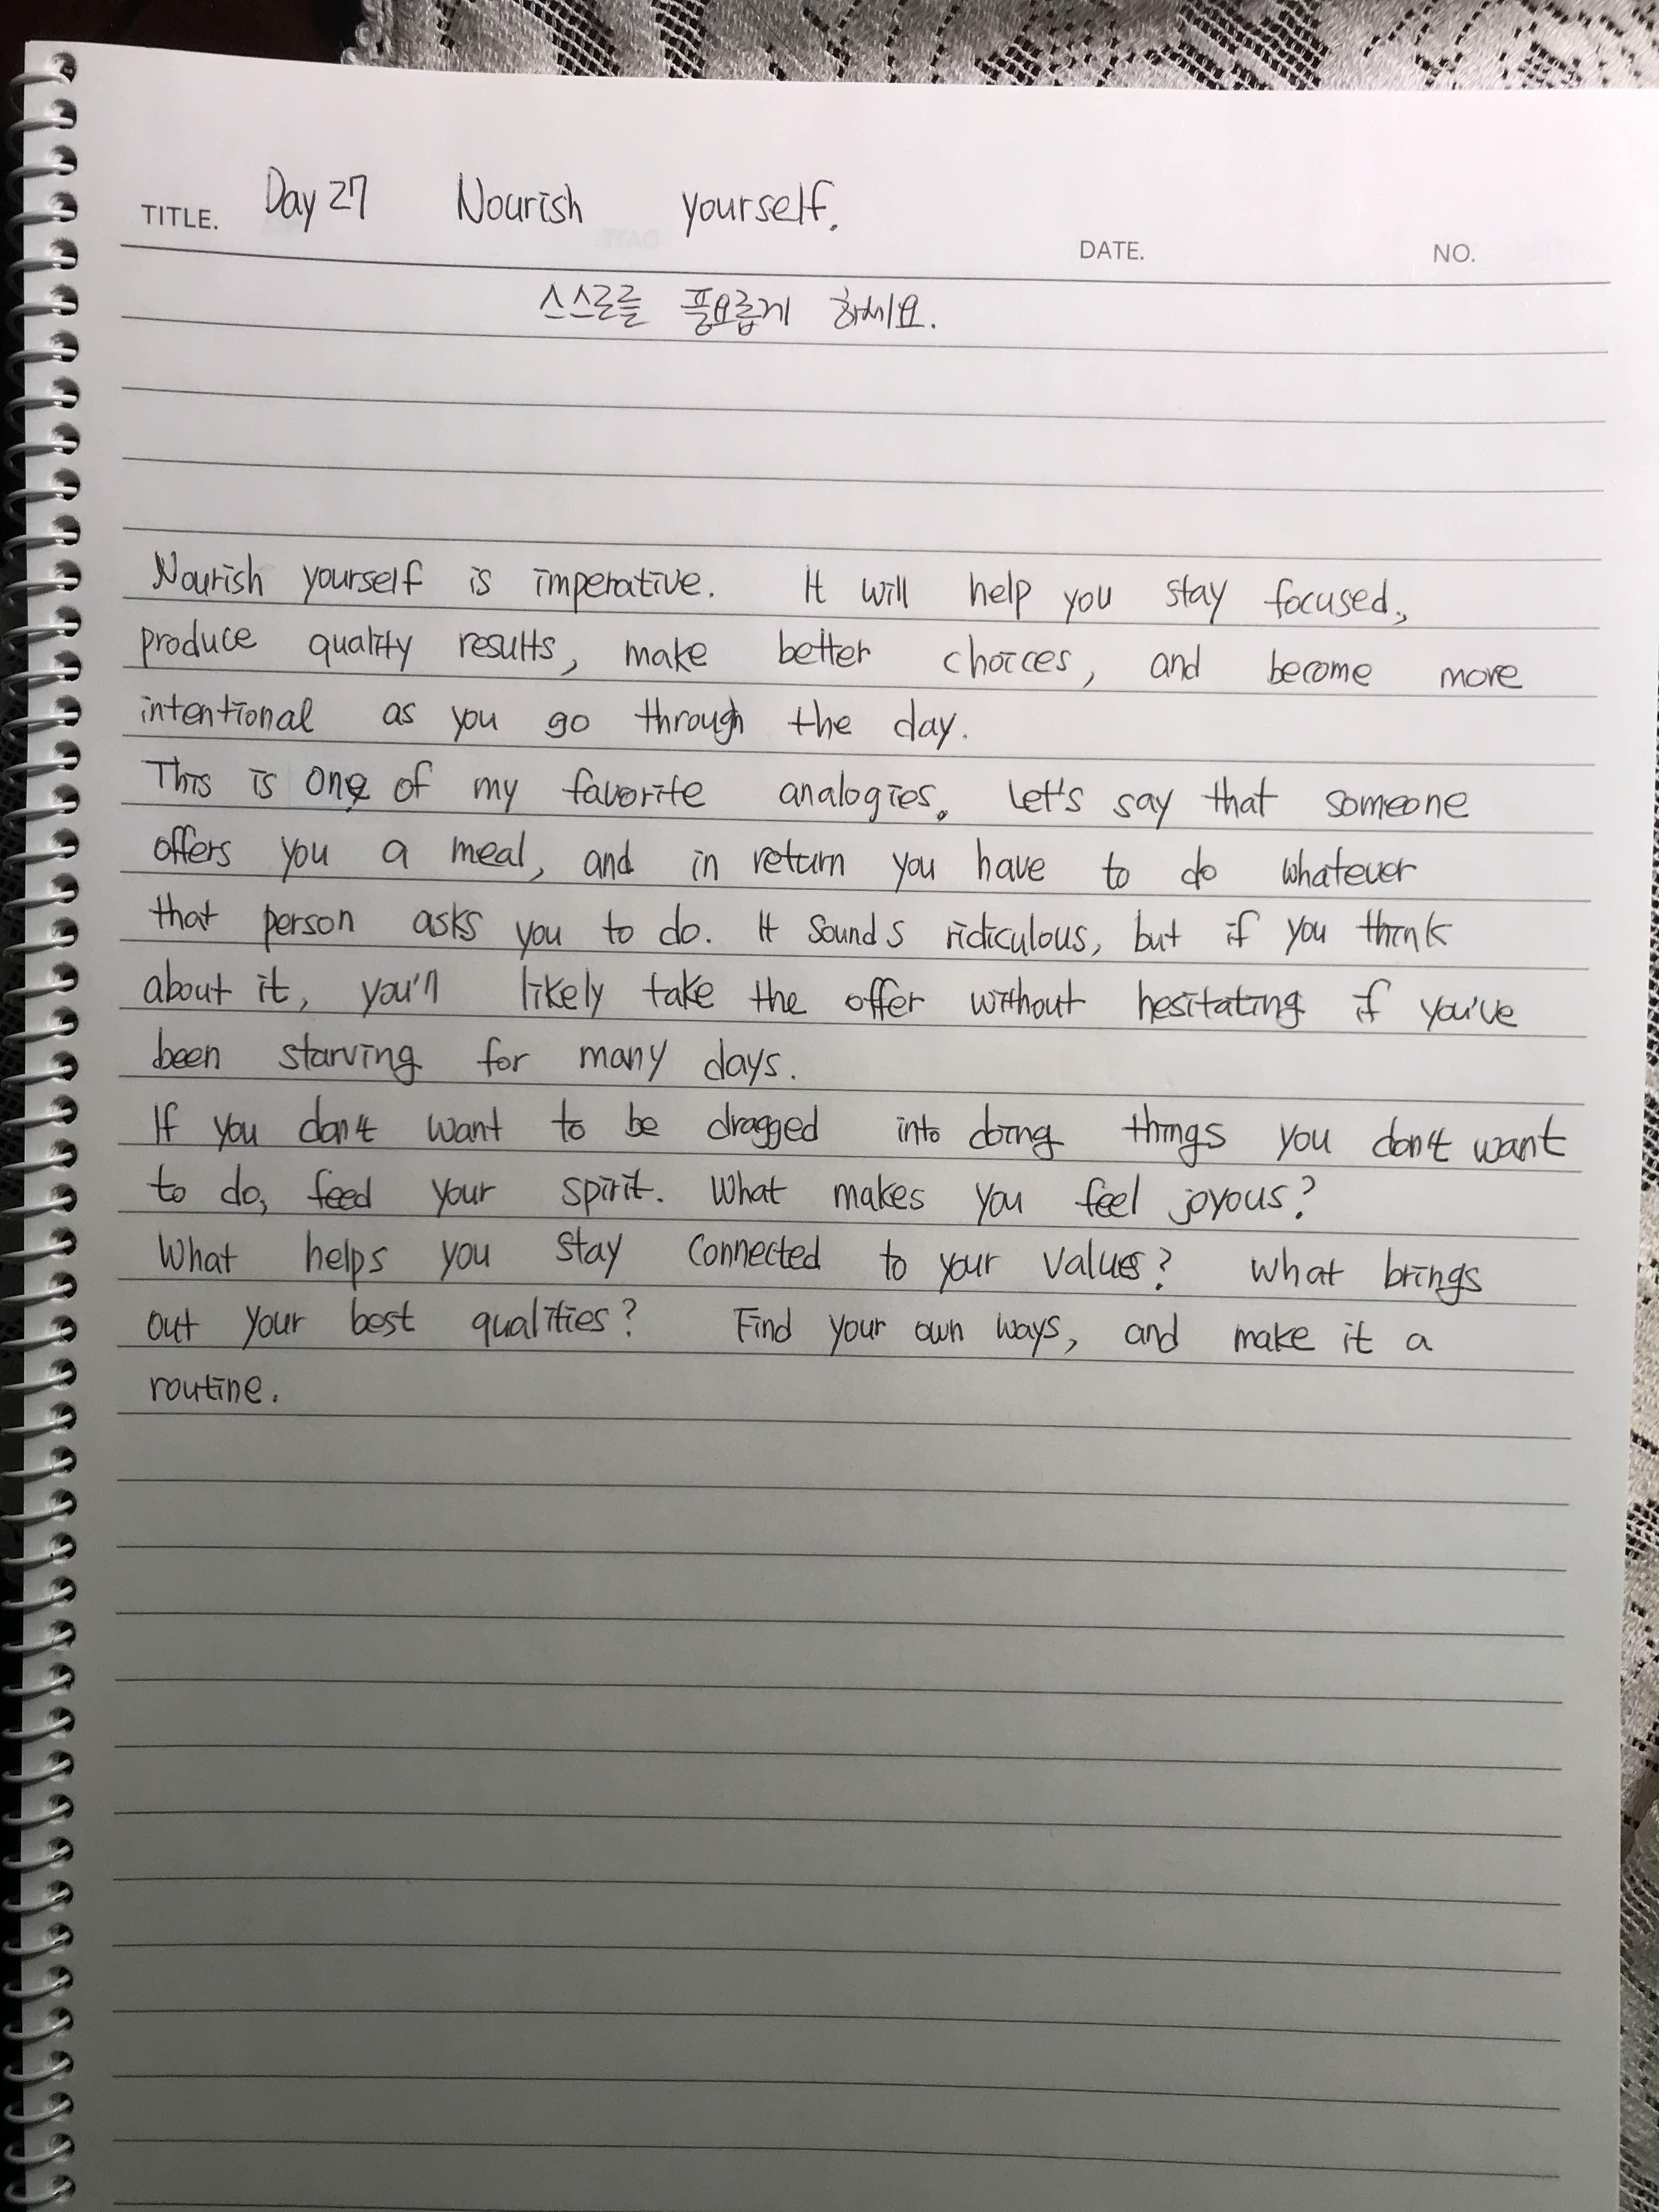 TITLE. Day 27 Nourish yourself.
DATE. NO.
스스로를 풍요롭게 하세요.
Nourish yourself is imperative. It will help you stay focused,
produce quality results, make better choices, and become more
intentional as you go through the day.
This is one of my favorite analogies. Let's say that someone
offers you a meal, and in return you have to do whatever
that person asks you to do. It sounds ridiculous, but if you think
about it, you'll likely take the offer without hesitating if you've
been starving for many days.
If you don't want to be dragged into doing things you don't want
to do, feed your spirit. What makes you feel joyous?
What helps you stay connected to your values? What brings
out your best qualities? Find your own ways, and make it a
routine.